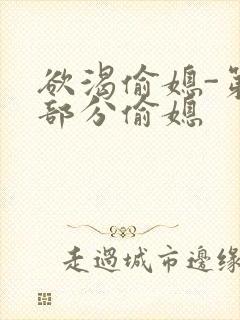 欲渴偷媳-第
部分偷媳
走過城市邊緣